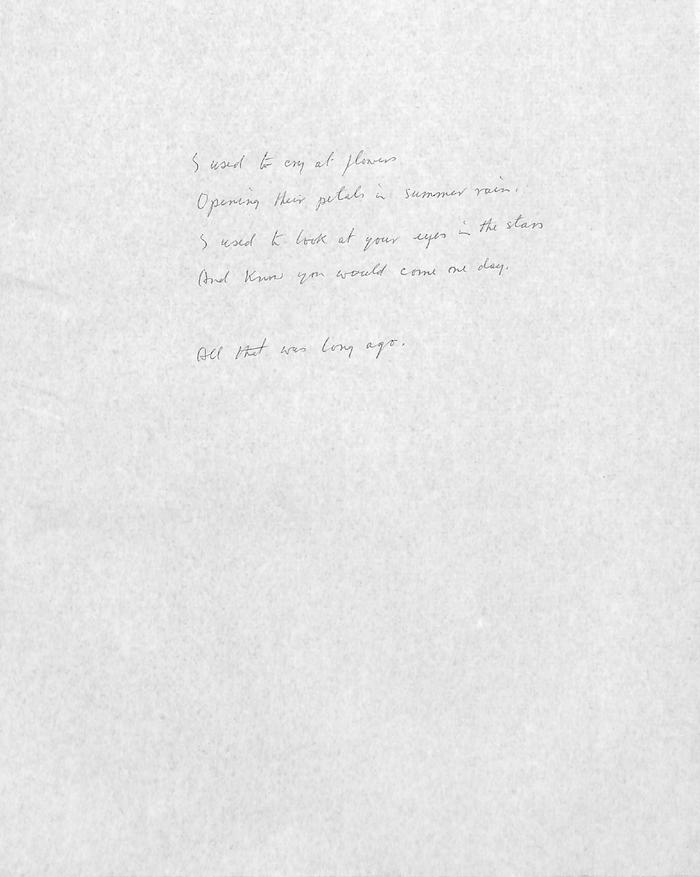 I used to cry at flowers
Opening their petals in summer rain.
I used to look at your eyes in the stars
And knew you would come one day.
All that was long ago.